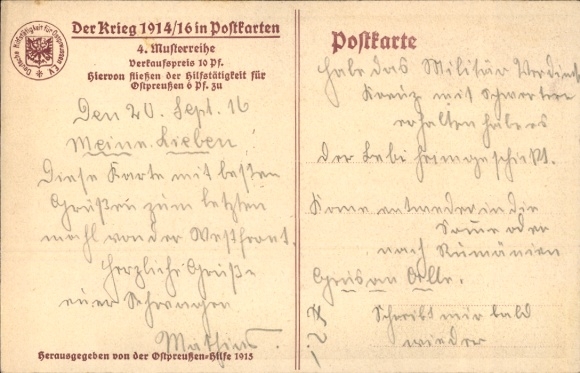 Der Krieg 1914/16 in Postkarten
4. Musterreihe
Verkaufspreis 10 Pf.
Hiervon fließen der Hilfstätigkeit für
Ostpreußen 6 Pf. zu
Den 20. Sept. 16
Meine Lieben!
Diese Karte mit besten
Grüßen zum letzten
mahl von der Westfront.
Herzliche Grüße
euer Schwager
Mathias.
Herausgegeben von der Ostpreußen-Hilfe 1915
Postkarte
habe das Militär Verdienst
Kreuz mit Schwerter
erhalten habe es
der Bebi heimgeschikt.
Kome entweder in die
Some oder
nach Rumänien
Grus an Alle.
Schreibt mir bald
wieder